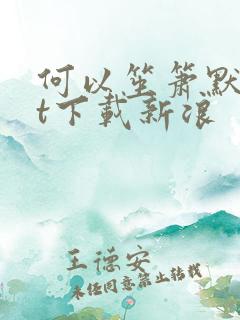 何以笙箫默
t下载新浪
王德安
未经同意禁止转载